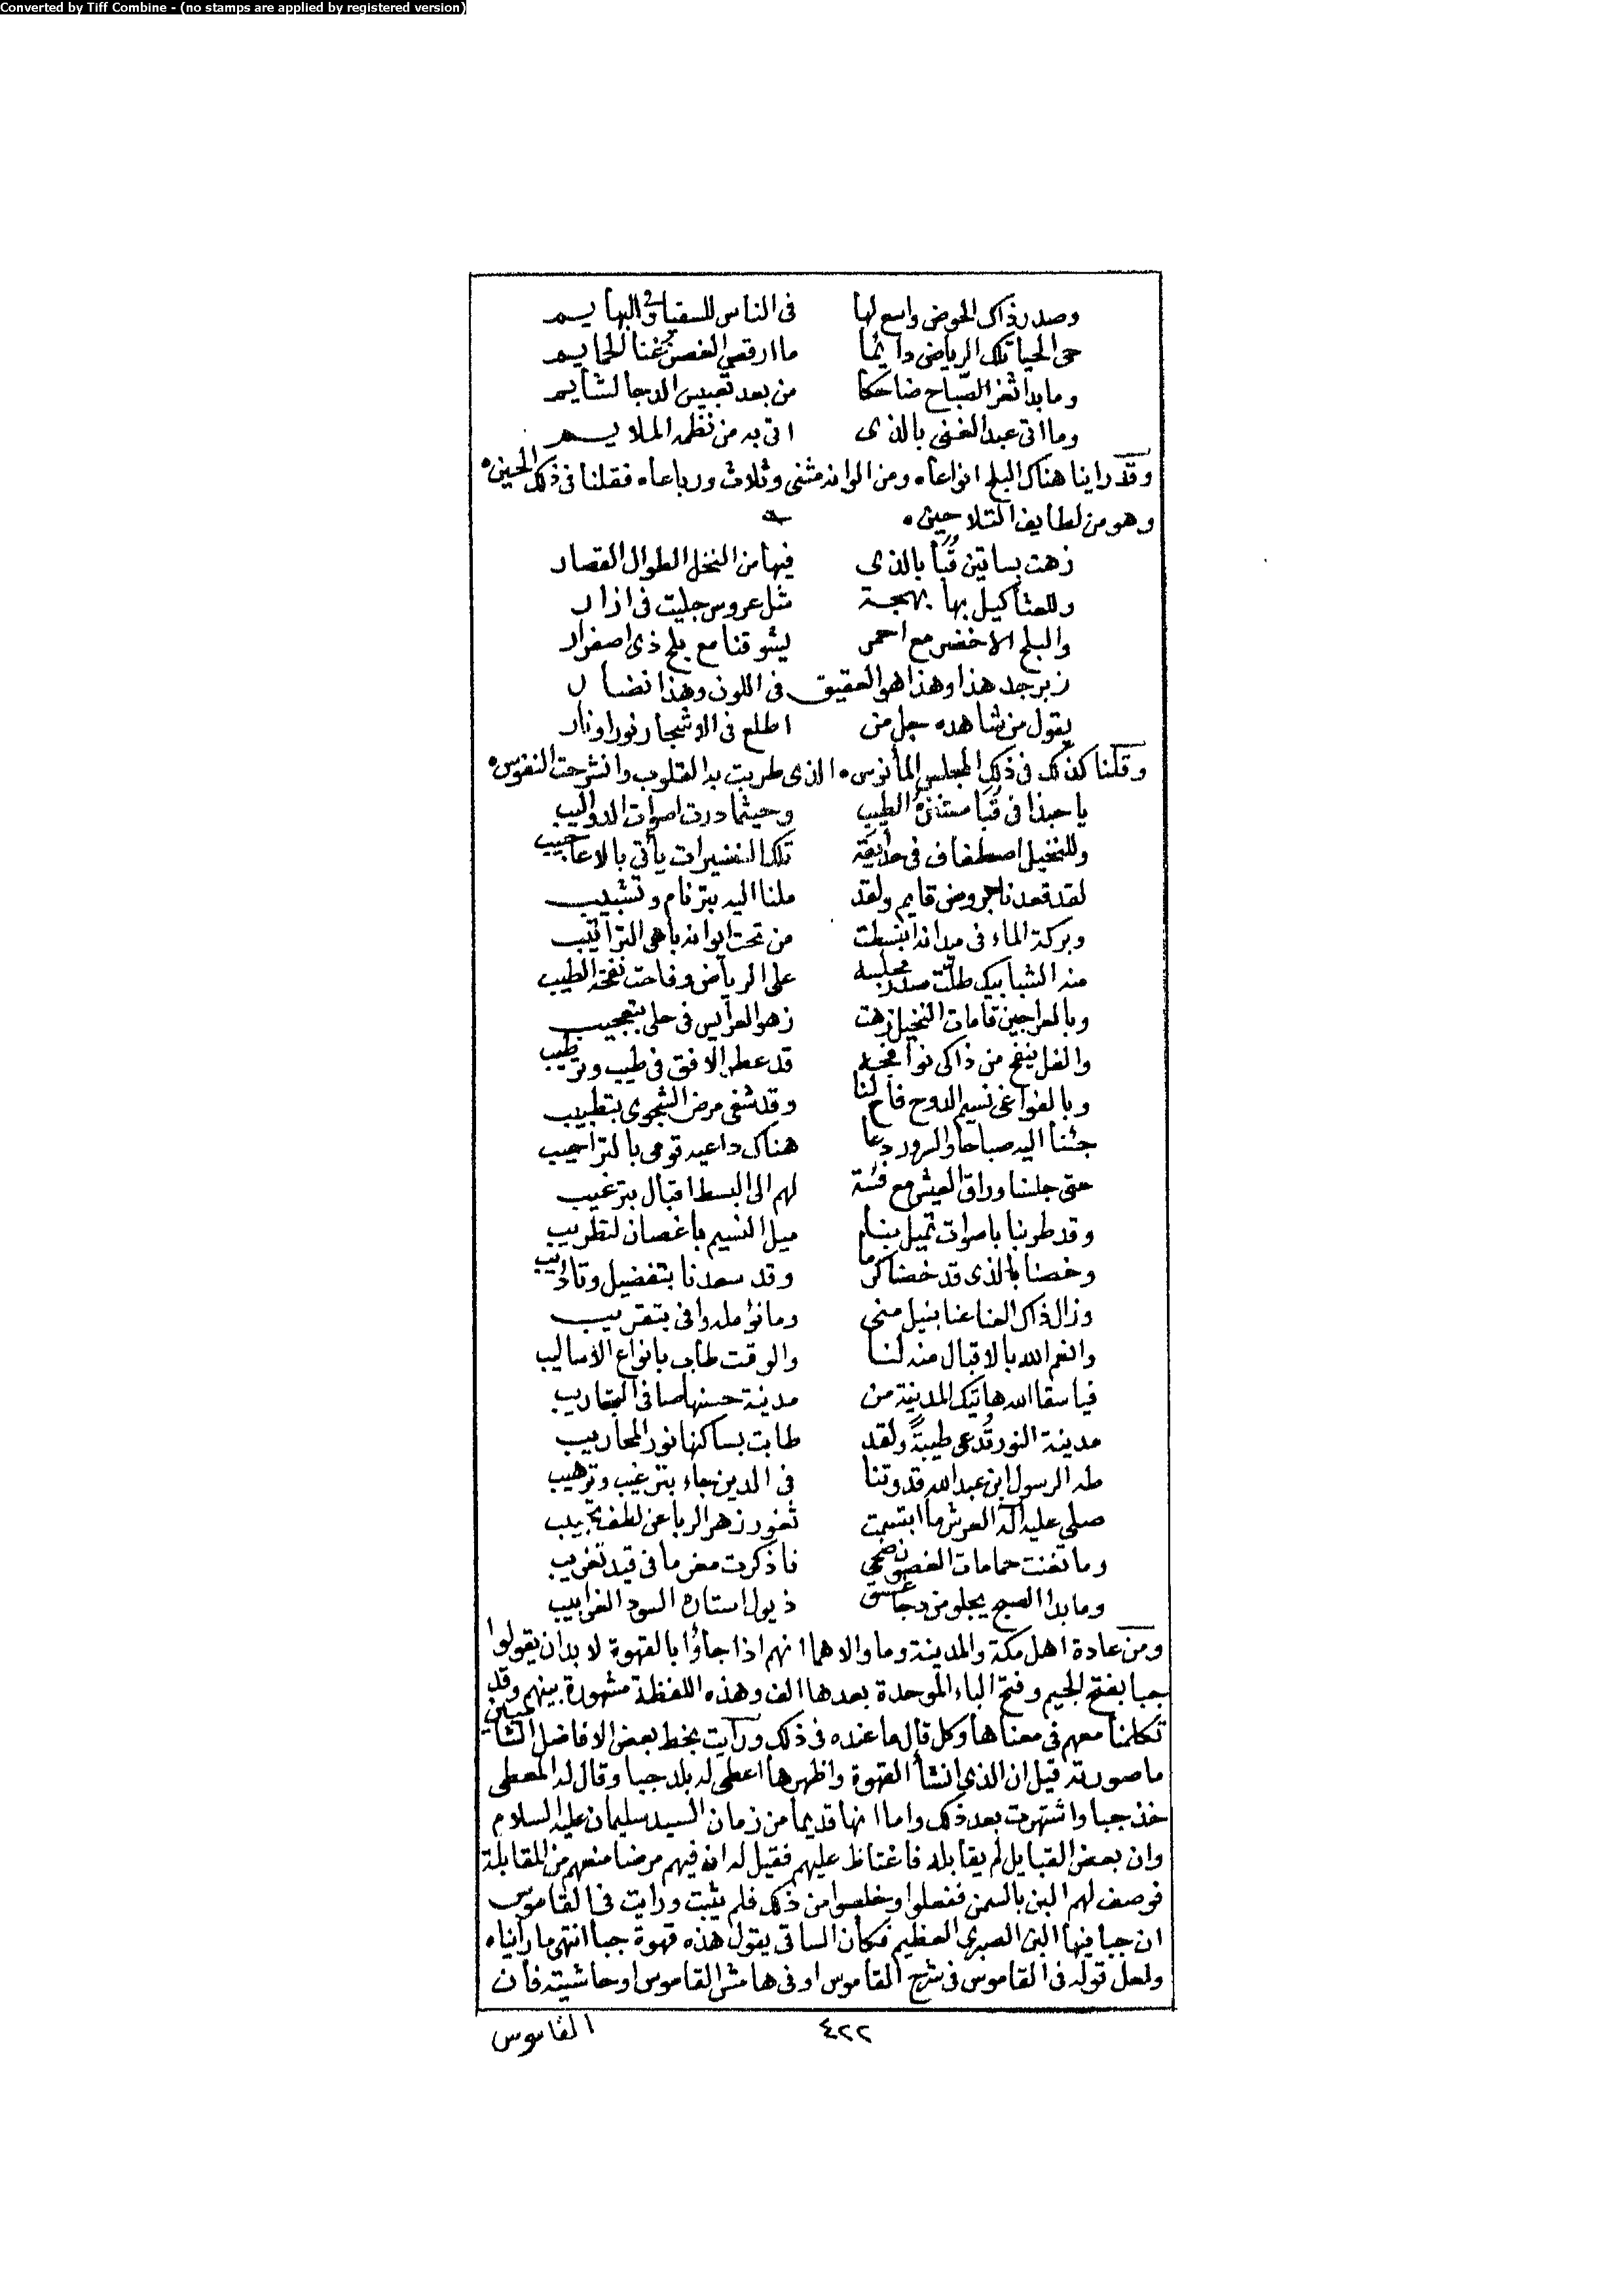 Converted by Tiff Combine - (no stamps are applied by registered version)
وصدر ذاك الحوض واسع لها في الناس للسقيا والبهايسم
حي الحيا تلك الرياض دايما ما ارقص الغصن غنا الحمايسم
وما بدا ثغر الصباح ضاحكا من بعد تعبيس الدجا لشايسم
وما اتى عبد الغني بالذي اتى به من نظمه الملايسم
وقد راينا هناك البلح انواعا ومن الوانه مثنى وثلاث ورباعا فقلنا في ذلك الحين
وهو من لطايف التلاحين
زهت بساتين قُبا بالذي فيها من النخل الطوال القصار
وللعثاكيل بها بهجة مثل عروس جليت في ازار
والبلح الاخضر مع احمر يشوقنا مع بلح ذي اصفرار
زبرجد هذا وهذا هو العقيق في اللون وهذا نضار
يقول من شاهده جل من اطلع في الاشجار نورا ونار
وقلنا كذلك في ذلك المجلس المأنوس الذي طربت به القلوب وانشرحت النفوس
يا حبذا في قُبا مستنزه الطيب وحيثما درت اصوات الدواليب
وللنخيل اصطفاف في حدايقة تلك النضيرات يأتي بالاعاجيب
لقد قعدنا بروض قايم ولقد ملنا اليه بترنام وتشبيب
وبركة الماء في ميدانه انبسطت من تحت ايوانه باهي التراتيب
منه الشبابيك طلت صدر مجلسه على الرياض وفاحت نفحة الطيب
وبالعراجين قامات النخيل زهت زهو العرايس في حلي بتعجيب
والفل ينفح من ذاكي نوافجه قد عطر الافق في طيب وترطيب
وبالفواغي نسيم الدوح فاح لنا وقد شفى مرض الشجوى بتطبيب
جئنا اليه صباحا والسرور دعا هناك داعيه قومي بالتراحيب
حتى جلسنا وراق العيش مع فئة لهم الى البسط اقبال بترغيب
وقد طربنا باصوات تميل بنا ميل النسيم باغصان لتطريب
وخصنا بالذي قد خصنا كرما وقد سعدنا بتفضيل وتاديب
وزال ذاك العنا عنا بنيل منى وما نؤمله وافى بتقريب
وانعم الله بالاقبال منه لنا والوقت طاب بانواع الاساليب
فيا سقا الله هاتيك المدينة من مدينة حسنها صافي التجاريب
مدينة النور تُدعى طيبةً ولقد طابت بساكنها نور المحاريب
طه الرسول ابن عبد الله قدوتنا في الدين جاء بترغيب وترهيب
صلى عليه اله العرش ما ابتسمت ثغور زهر الربا عن لطف تحبيب
وما تغنت حمامات الغصون ضحى فاذكرت مغرما في قيد تغريب
وما بدا الصبح يجلو من دجا غسق ذيول استاره السود الغرابيب
ومن عادة اهل مكة والمدينة وما والاهما انهم اذا جاؤا بالقهوة لا بد ان يقولوا
جبا بفتح الجيم وفتح الباء الموحدة بعدها الف وهذه اللفظة مشهورة بينهم وقد
تكلمنا معهم في معناها وكل قال ما عنده في ذلك ورأيت بخط بعض الافاضل الشاميين
ما صورته قيل ان الذي انشأ القهوة واظهرها اعطى له بلد جبا وقال له المعطى
خذ جبا واشتهرت بعد ذلك واما انها قديما من زمان السيد سليمان عليه السلام
وان بعض القبايل لم يقابله فاغتاظ عليهم فقيل له انه فيهم مرضا منعهم من المقابلة
فوصف لهم البن بالسمن ففعلوا وخلصوا من ذلك فلم يثبت ورايت في القاموس
ان جبا فيها البن الصبري العظيم فكأن الساقي يقول هذه قهوة جبا انتهى ما رأيناه
ولعل قوله في القاموس في شرح القاموس او في هامش القاموس او حاشيته فان
القاموس
٤٢٢